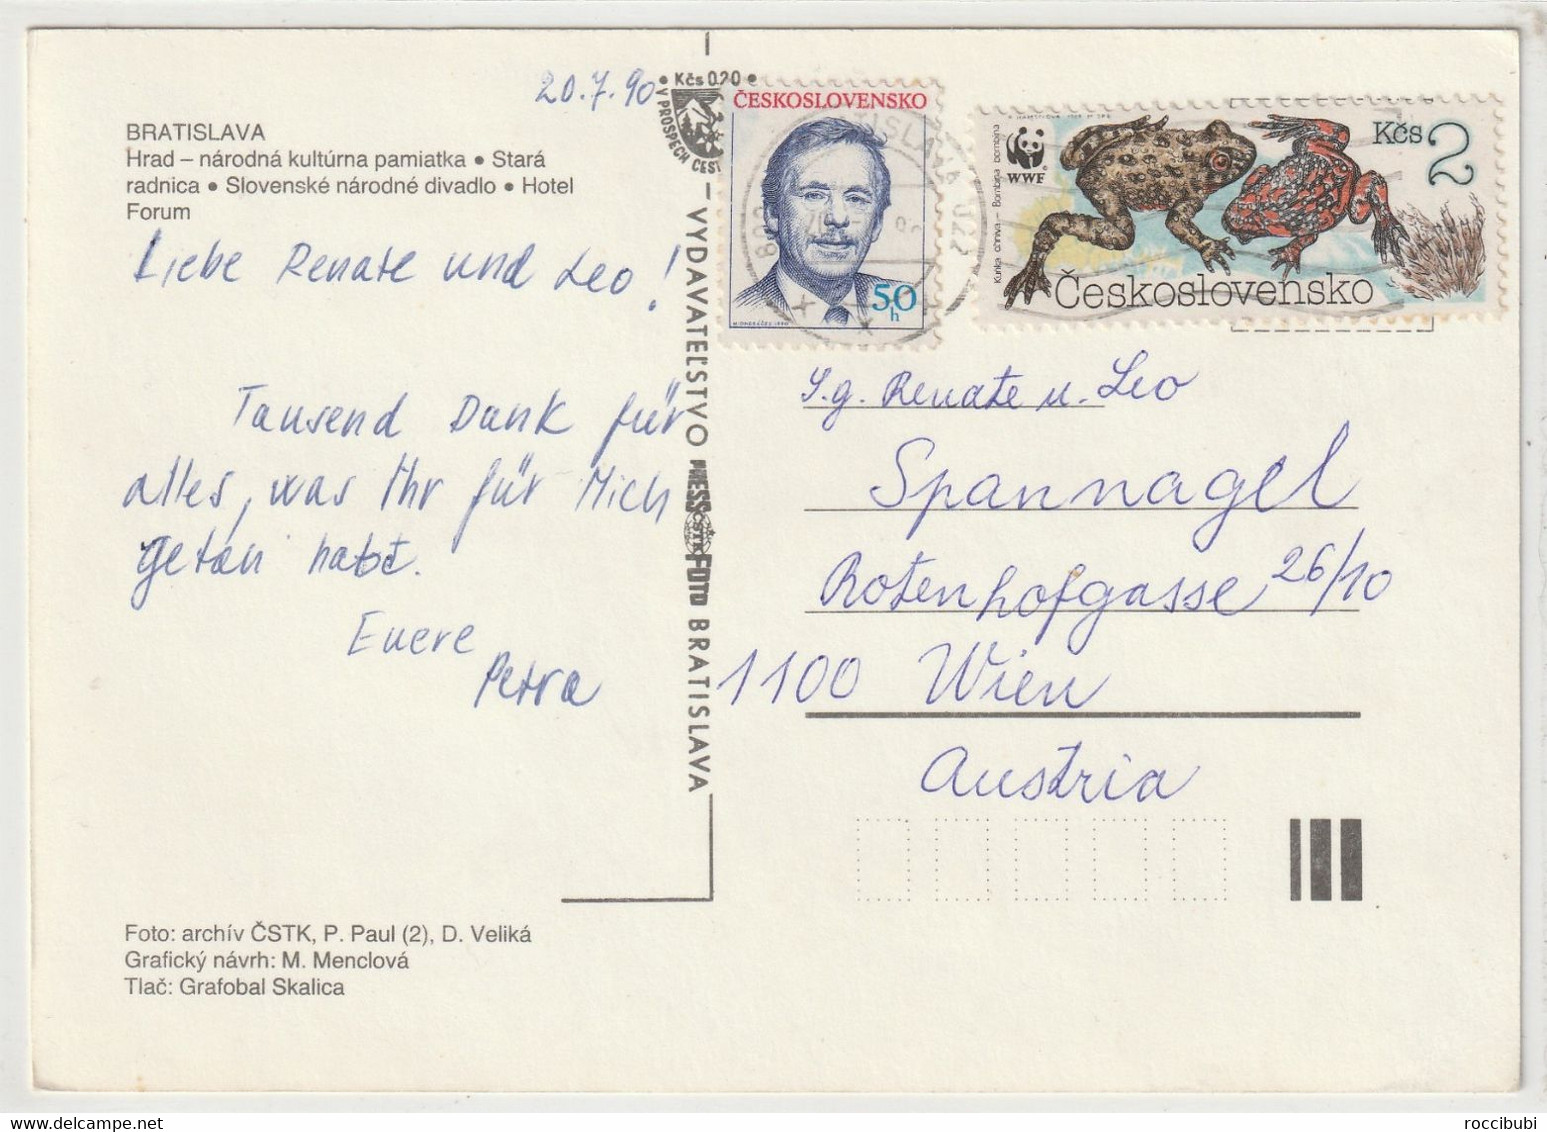 20.7.90
BRATISLAVA
Hrad – národná kultúrna pamiatka • Stará
radnica • Slovenské národné divadlo • Hotel
Forum
Liebe Renate und Leo!
Tausend Dank für
alles, was Ihr für Mich
getan habt.
Euere
Petra
Foto: archív ČSTK, P. Paul (2), D. Veliká
Grafický návrh: M. Menclová
Tlač: Grafobal Skalica
• Kčs 0.20 •
V PROSPECH
VYDAVATEĽSTVO PRESSFOTO BRATISLAVA
ČSTK
ČESKOSLOVENSKO
50
h
BRATISLAVA 022
WWF
Kunka ohnivá – Bombina bombina
Kčs 2
Československo
S.g. Renate u. Leo
Spannagel
Rotenhofgasse 26/10
1100 Wien
Austria
roccibubi